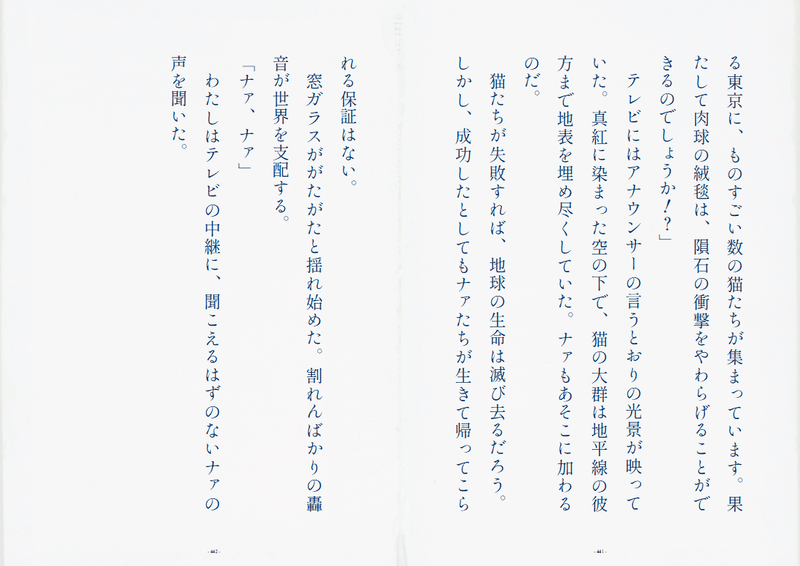 る東京に、ものすごい数の猫たちが集まっています。果
たして肉球の絨毯は、隕石の衝撃をやわらげることがで
きるのでしょうか！？」
テレビにはアナウンサーの言うとおりの光景が映って
いた。真紅に染まった空の下で、猫の大群は地平線の彼
方まで地表を埋め尽くしていた。ナァもあそこに加わる
のだ。
猫たちが失敗すれば、地球の生命は滅び去るだろう。
しかし、成功したとしてもナァたちが生きて帰ってこら
- 441 -
れる保証はない。
窓ガラスががたがたと揺れ始めた。割れんばかりの轟
音が世界を支配する。
「ナァ、ナァ」
わたしはテレビの中継に、聞こえるはずのないナァの
声を聞いた。
- 442 -